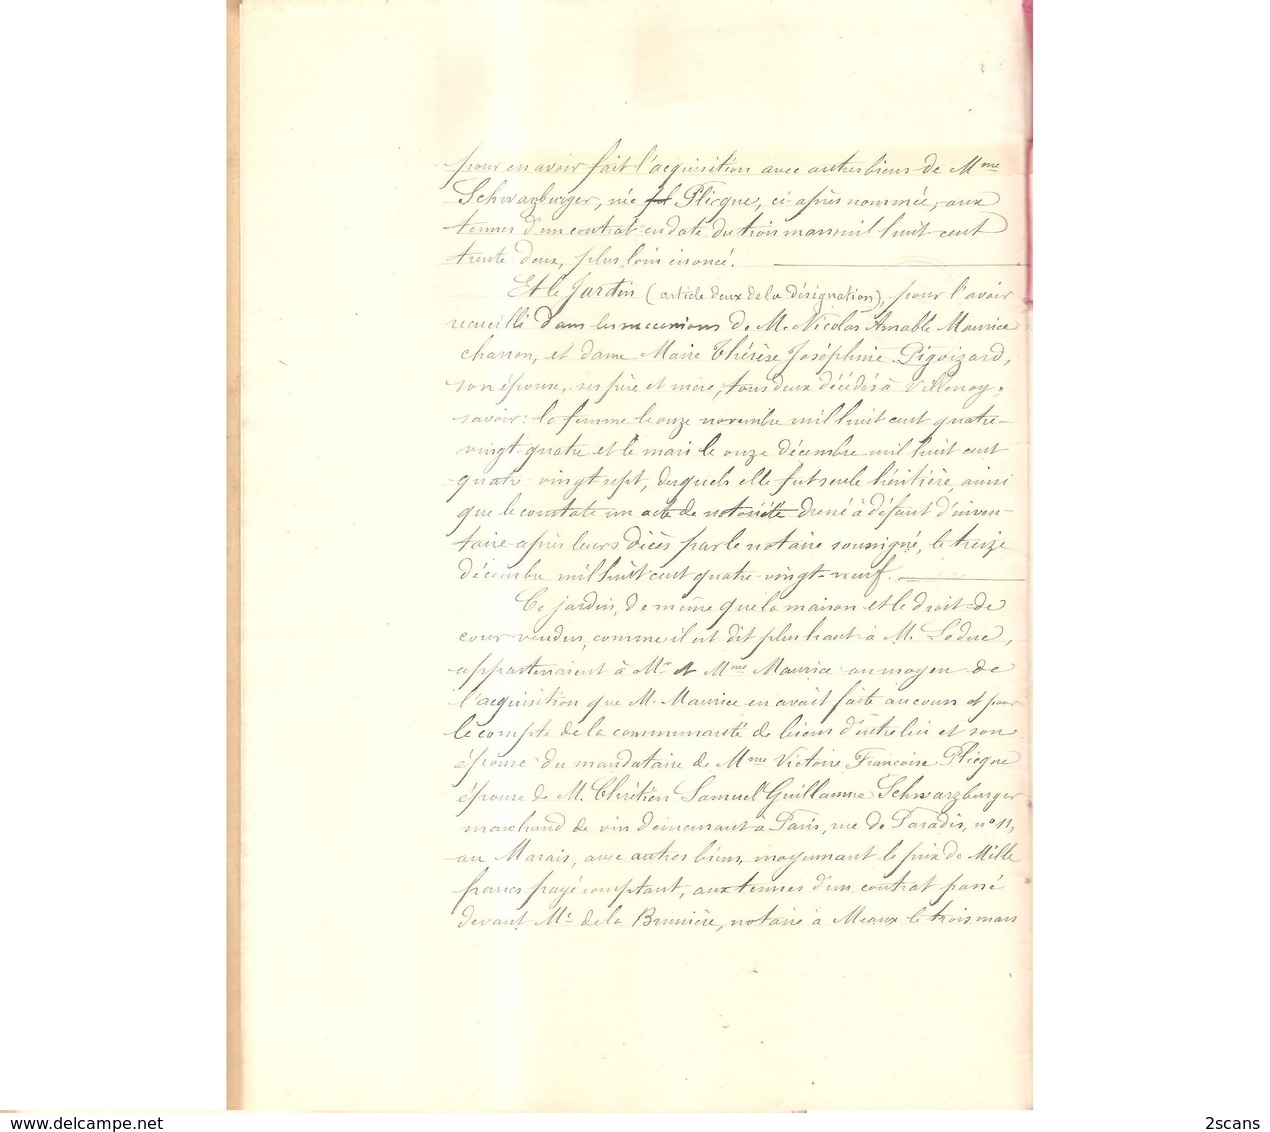 pour en avoir fait l'acquisition avec autres biens de Mme
Schwarzburger, née Plicque, ci-après nommée, aux
termes d'un contrat en date du trois mars mil huit cent
trente deux, plus loin énoncé.
Et le Jardin (article deux de la désignation), pour l'avoir
recueilli dans les successions de M. Nicolas Amable Maurice
charron, et dame Marie Thérèse Joséphine Pigoizard,
son épouse, ses père et mère, tous deux décédés à Villenoy,
savoir: la femme le onze novembre mil huit cent quatre-
vingt-quatre et le mari le onze décembre mil huit cent
quatre-vingt sept, desquels elle fut seule héritière, ainsi
que le constate un acte de notoriété dressé à défaut d'inven-
taire après leurs décès par le notaire soussigné, le treize
décembre mil huit cent quatre-vingt-neuf.
Ce jardin, de même que la maison et le droit de
cour vendus, comme il est dit plus haut à M. Leduc,
appartenaient à Mr et Mme Maurice au moyen de
l'acquisition que M. Maurice en avait faite au cours et pour
le compte de la communauté de biens d'entre lui et son
épouse du mandataire de Mme Victoire Françoise Plicque
épouse de M. Chrétien Samuel Guillaume Schwarzburger
marchand de vin demeurant à Paris, rue de Paradis, no 11,
au Marais, avec autres biens, moyennant le prix de Mille
francs payé comptant, aux termes d'un contrat passé
devant Me de la Brunière, notaire à Meaux le trois mars
www.delcampe.net
2scans